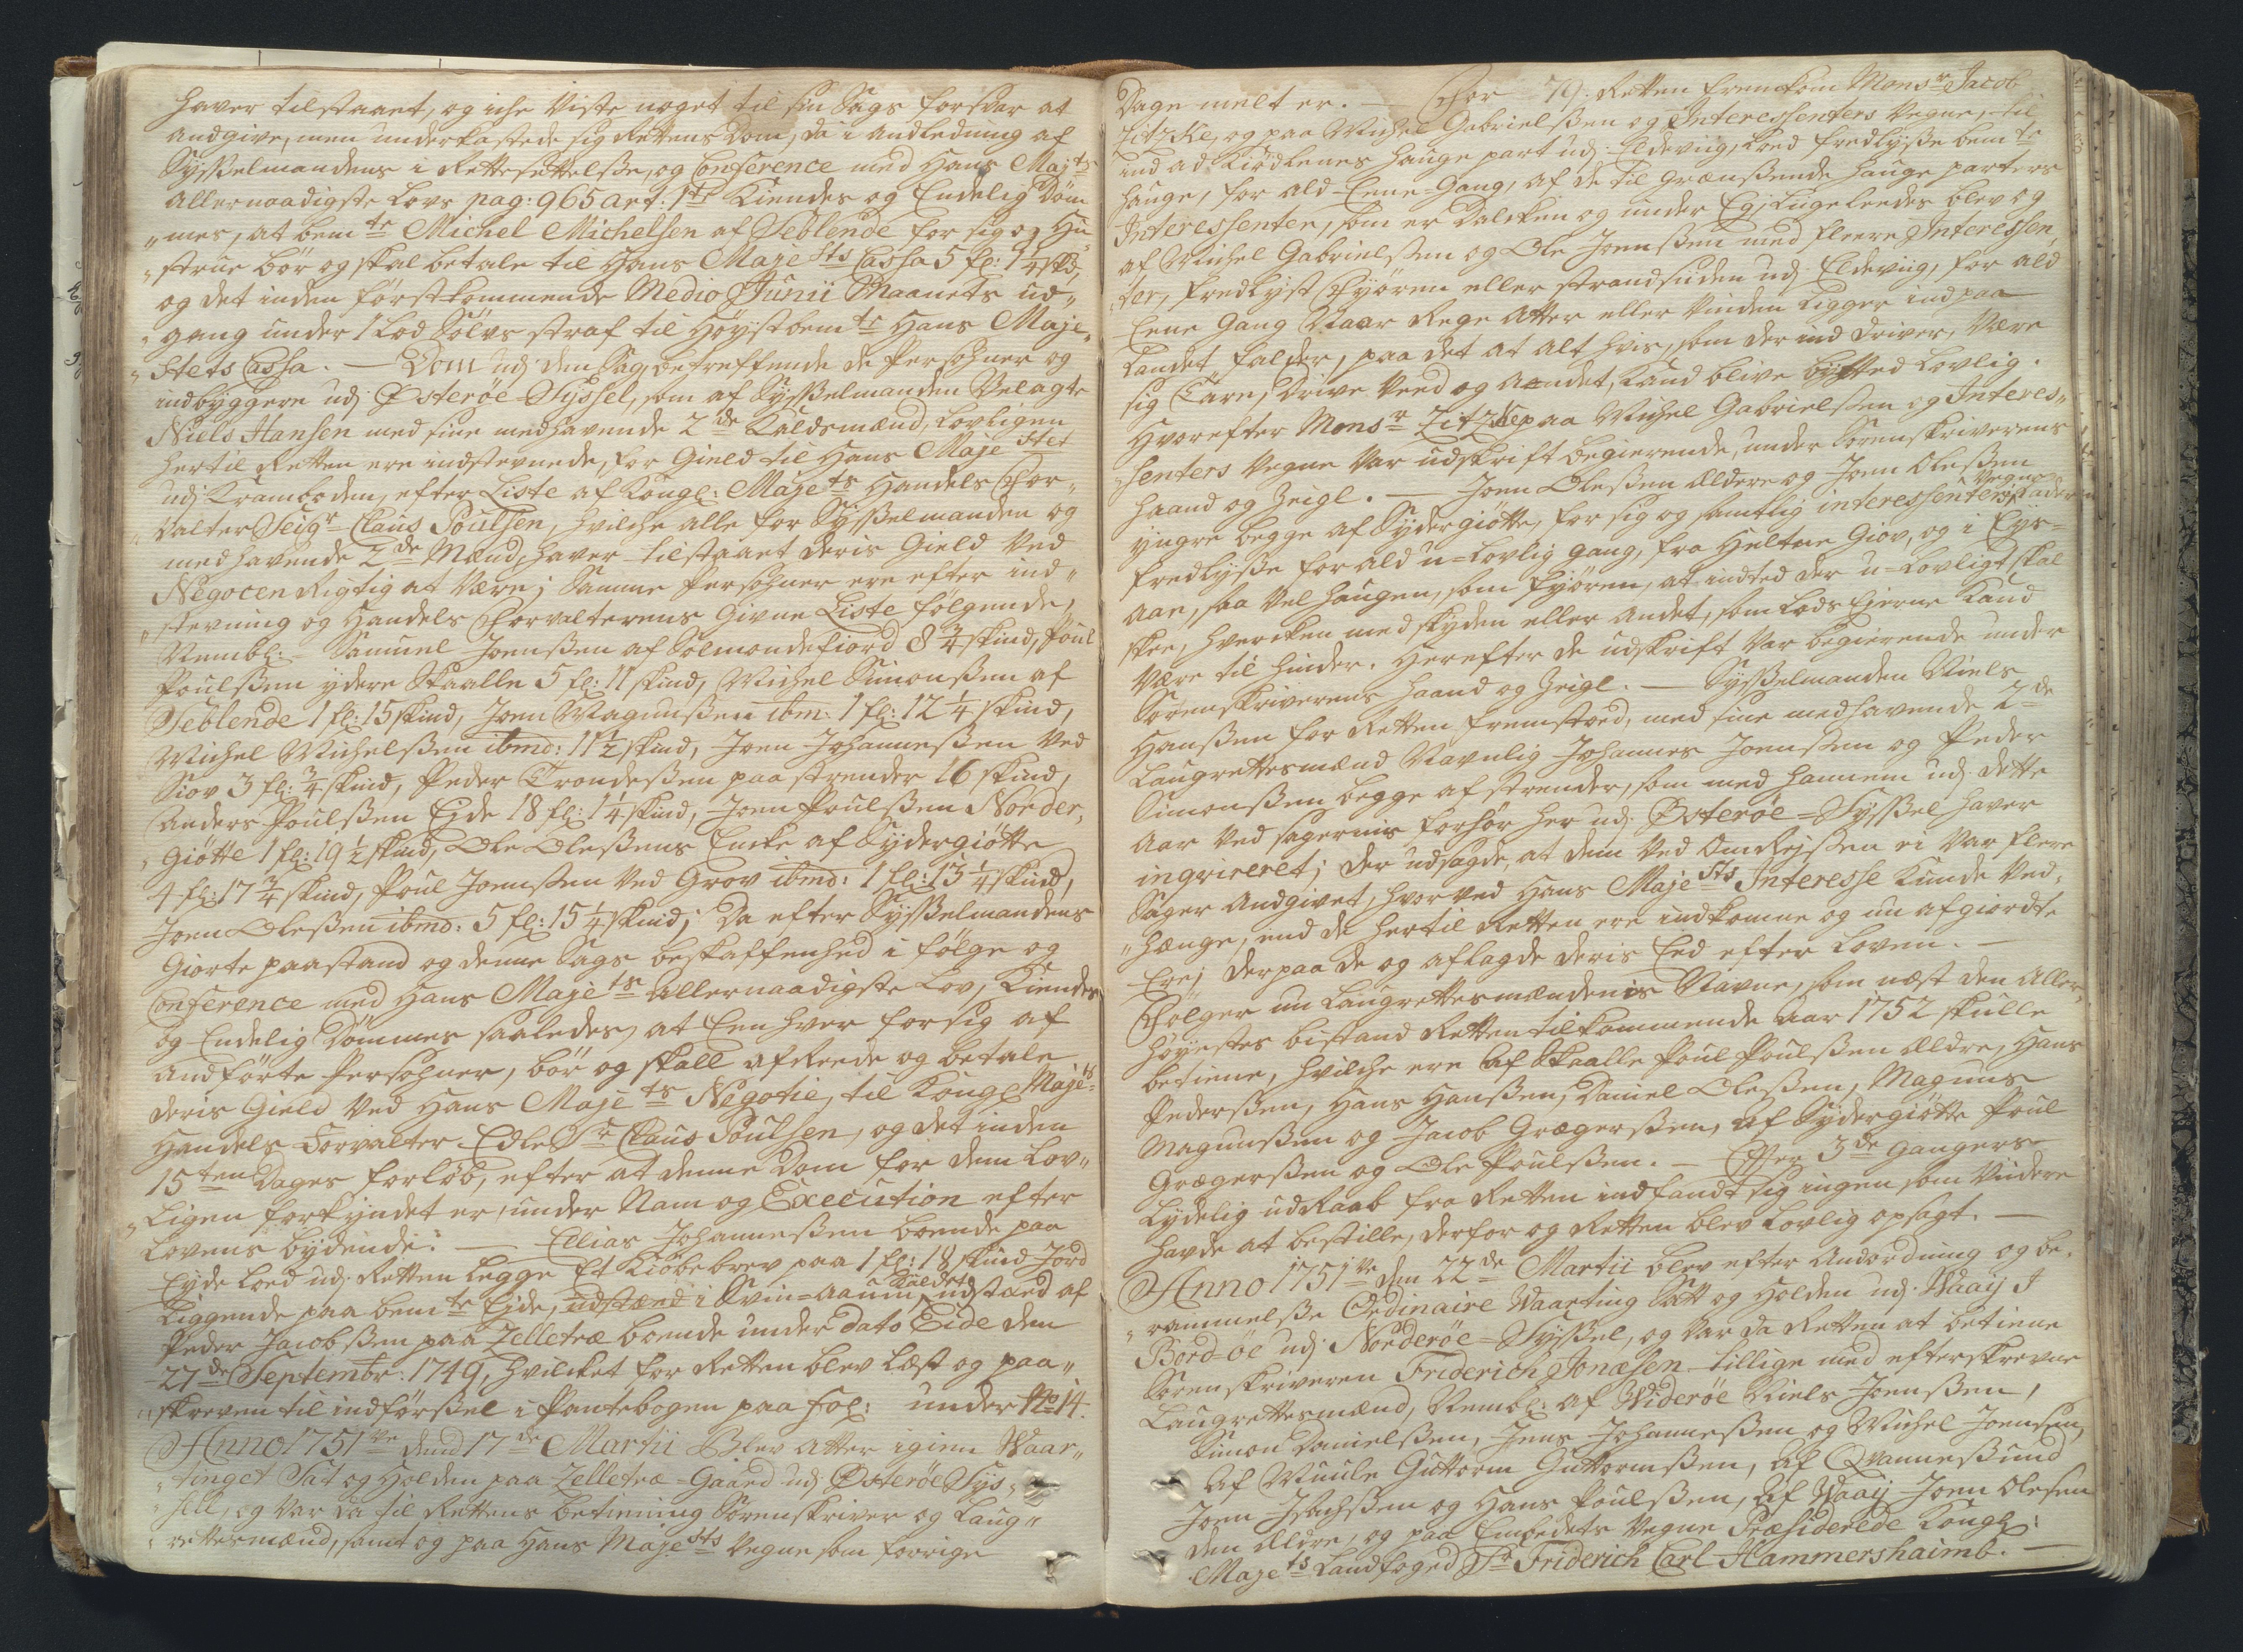 haver tilstaaet, og iche viste noget til sin Sags forsvar at
andgive, men underkastede sig Rettens Dom, da i andledning af
Sysselmandens i Rettesettelse, og Conference med Hans Majts
allernaadigste Lovs pag: 965 art: 1te Kiendes og Endelig Döm
"mes, at bemte Michel Michelsen af Seblende for sig og Hu
"strue bör og skal betale til Hans Majests Cassa 5 fl: 1¼ skd,
og det inden förstkommende Medio Junii Maanets ud"
"gang under 1 Lod Sölvs straf til Höystbemte Hans Maje"
"stets Cassa. — Dom udj den Sag betreffende de Persohner og
indbyggere udj Österöe Syssel, som af Sysselmanden Velagte
Niels Hansen med sine medhavende 2de Kaldsmænd, Lovligen
hertil Retten ere indstevnede, for Gield til Hans Majestet
udj Kramboden, efter Liste af Kongl: Majets Handels For"
"valter Seigr Claus Poulsen, hvilche alle for Sysselmanden og
medhavende 2de Mænd, haver tilstaaet deris Gield ved
Negocen Rigtig at være; Samme Persohner ere efter ind"
"stevning og Handels Forvalterens Givne Liste fölgende,
Nembl: Samuel Joensen af Solmondefiord 8¾ skind, Poul
Poulsen ydere Skaalle 5 fl: 11 skind, Michel Simonsen af
Seblende 1 fl: 15 skind, Joen Magnussen ibm: 1 fl: 12¼ skind,
Michel Michelsen ibmd: 11½ skind, Joen Johannesen ved
Siov 3 fl: ¾ skind, Peder Trondesen paa strender 16 skind,
Anders Poulsen Ejde 18 fl: 1¼ skind, Joen Poulsen Norder"
"Giötte 1 fl: 19½ skind, Ole Olesens Encke af Sydergiötte
4 fl: 17¾ skind, Poul Joensen ved Grov ibmd: 1 fl: 13¼ skind,
Joen Olesen ibmd: 5 fl: 15¼ skind; Da efter Sysselmandens
Giorte paastand og denne Sags beskaffenhed i fölge og
Conference med Hans Majets allernaadigste Lov, Kiendes
og Endelig Dömmes saaledes, at Een hver for sig af
andförte Persohner, bör og skall afReede og betale
deris Gield ved Hans Majets Negotie, til Kongl Majets
Handels Forvalter Edle Sr Claus Poulsen, og det inden
15ten Dages forlöb, efter at denne Dom for dem Lov"
"Ligen forkyndet er, under Nam og Execution efter
Lovens bydende. — Ellias Johannesen boende paa
Eyde loed udj Retten legge Et Kiöbebrev paa 1 fl: 18 skind Jord
Liggende paa bemte Ejde, udstæed i Svin=aaum Kaldet, udstæed af
Peder Jacobsen paa Zelletræ boende under dato Eide den
27de Septembr: 1749, hvilcket for Retten blev læst og paa"
"skreven til indförsel i Pantebogen paa fol: under No 14.
Anno 1751ve dend 17de Martii Blev atter igien Vaar"
"tinget Sat og Holden paa Zelletræ=Gaard udj Österöe Sys"
"sell, og var da til Rettens betiening Sorenskriver og Laug"
"rettesmænd, samt og paa Hans Majests Vegne som forrige
Dage melt er. — For 79: Retten fremkom Monsr Jacob
Zitzke, og paa Michel Gabrielsen og Interessenters Vegne, til
ind ad Kiödlenes Hauge part udj Eldeviig, loed fredlyse bemte
Hauge, for ald Eene=Gang, af de til grænsende Hauge parters
Interessenter, som er Dalcken og under Eg; Ligeleedes blev og
af Michel Gabrielsen og Ole Joensen med fleere Interessen"
"ter, fredlyst Fyören eller strandsiden udj Eldeviig, for ald
Eene Gang Naar Rege Atter eller Vinden Ligger ind paa
Landet, falder, paa det at alt hvis, som der ind driver, være
sig Tare, Drive Veed og Andet, kand blive bytted Lovlig.
Hvorefter Monsr Zitzke paa Michel Gabrielsen og Interes"
"senters Vegne var udskrift begierende, under Sorenskriverens
Haand og Zeigl. — Joen Olesen ældere og Joen Olesen
yngre begge af Sydergiötte, for sig og samtlig interessenters Vegne lader
fredlyse for ald u=lovlig gang, fra Heltne Giov, og i Eys=
aae, saa vel Haugen, som Fyören, at indted der u=Lovligt skal
skee, hvercken med skyden eller andet, som Lods Ejerne kand
være til hinder. Herefter de udskrift var begierende under
Sorenskriverens Haand og Zeigl. — Sysselmanden Niels
Hansen for Retten fremstoed, med sine medhavende 2de
Laugrettesmænd Navnlig Johannes Joensen og Peder
Simonsen begge af strender, som med hannem udj dette
Aar ved sagernis forhör her udj Österöe=Syssel haver
inqvireret; der udsagde, at dem ved OmRejsen ei var flere
Sager Andgivet, hvorved Hans Majests Interesse kunde Ved"
"hænge, end de hertil Retten ere indkomne og nu afgiordte
Ere; Derpaa de og aflagde deris Eed efter Loven. —
Fölger nu Laugrettesmændenis Navne, som næst den Aller
höyestes bistand Retten tilkommende Aar 1752 skulle
betiene, hvilche ere af Skaalle Poul Poulsen ældre, Hans
Pedersen, Hans Hansen, Daniel Olesen, Magnus
Magnussen og Jacob Grægersen, af Sydergiötte Poul
Grægersen og Ole Poulsen. — Efter 3de Gangers
Lydelig udRaab fra Retten indfandt sig ingen som viidere
havde at bestille, derfor og Retten blev Lovlig opsagt. —
Anno 1751ve den 22de Martii blev efter Andordning og be"
"rammelse Ordinaire Vaarting Satt og Holden udj Waaij I
Bord=öe udj Norderöe=Syssel, og var da Retten at betiene
Sorenskriveren Friderich Jonæsen tillige med efterskrevne
Laugrettesmænd, Nembl: af Widerøe Niels Joensen,
Simon Danielsen, Jens Johannesen og Michel Joensen,
Af Muule Guttorm Guttormsen, af Qvannesund
Joen Isachsen og Hans Poulsen, af Waaij Joen Olesen
den ældre, og paa Embedets Vegne Præsiderede Kongl:
Majets Landfoged Sr Friderich Carl Hammershaimb. —